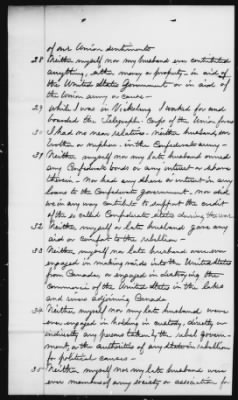 of our Union sentiments
28 Neither myself nor my husband ever contributed
anything, either money or property - in aid of
the United States Government - or in aid of
the Union army or cause -
29 While I was in Vicksburg I worked for and
boarded the Telegraph Corps of the Union forces
30 I had no near relatives - neither husband, son
brother or nephew - in the Confederate army -
31 Neither myself nor my late husband owned
any Confederate bonds or any interest or share
therein - Nor had any share or interest in any
loans to the Confederate government, nor did
we in any way contribute to support the credit
of the so called Confederate states during the war
32 Neither myself or late husband gave any
aid or comfort to the rebellion
33 Neither myself nor late husband were ever
engaged in making raids into the United States
from Canada, or engaged in destroying the
commerce of the United States in the lakes
and rivers adjoining Canada
34 Neither myself nor my late husband were
ever engaged in holding in custody, directly or
indirectly any persons taken by the rebel govern-
ment, or the authorities of any state in rebellion
for political causes -
35 Neither myself nor my late husband were
ever members of any society or association for